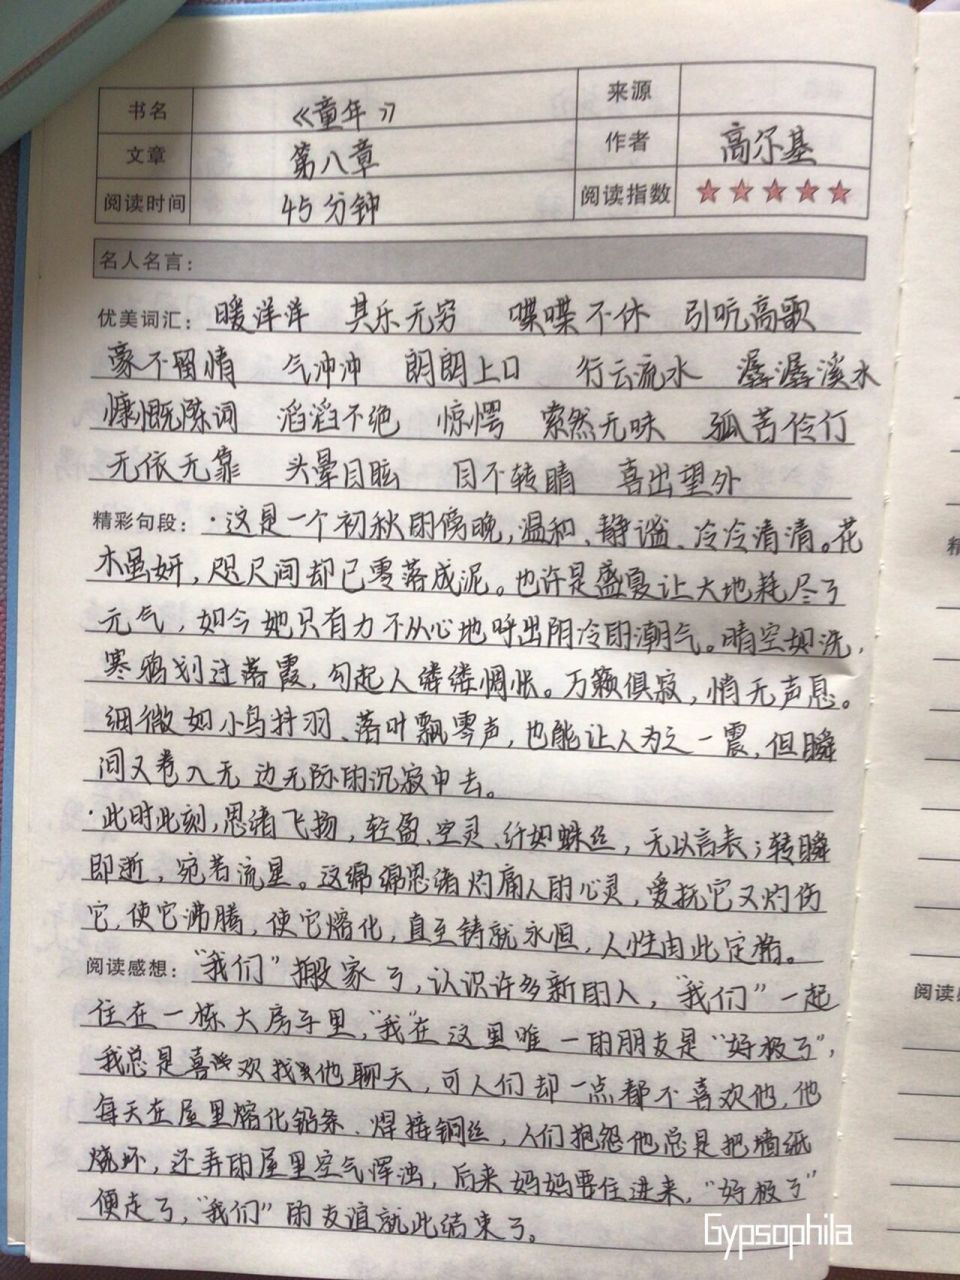 书名 《童年》 来源
文章 第八章 作者 高尔基
阅读时间 45分钟 阅读指数 ★★★★★
名人名言：
优美词汇：暖洋洋 其乐无穷 喋喋不休 引吭高歌
豪不留情 气冲冲 朗朗上口 行云流水 潺潺溪水
慷慨陈词 滔滔不绝 惊愕 索然无味 孤苦伶仃
无依无靠 头晕目眩 目不转睛 喜出望外
精彩句段：·这是一个初秋的傍晚，温和、静谧、冷冷清清。花
木虽妍，咫尺间却已零落成泥。也许是盛夏让大地耗尽了
元气，如今她只有力不从心地呼出阴冷的潮气。晴空如洗，
寒鸦划过落霞，勾起人缕缕惆怅。万籁俱寂，悄无声息。
细微如小鸟抖羽、落叶飘零声，也能让人为之一震，但瞬
间又卷入无边无际的沉寂中去。
·此时此刻，思绪飞扬，轻盈、空灵、纤如蛛丝，无以言表；转瞬
即逝，宛若流星。这绵绵思绪灼痛人的心灵，爱抚它又灼伤
它，使它沸腾，使它熔化，直至铸就永恒，人性由此定渐。
阅读感想：“我们”搬家了，认识许多新的人，“我们”一起
住在一栋大房子里，“我”在这里唯一的朋友是“好极了”，
我总是喜欢找他聊天，可人们却一点都不喜欢他，他
每天在屋里熔化铅条、焊接铜丝，人们抱怨他总是把墙纸
烧坏，还弄的屋里空气浑浊，后来妈妈要住进来，“好极了”
便走了，“我们”的友谊就此结束了。
Gypsophila
阅读感